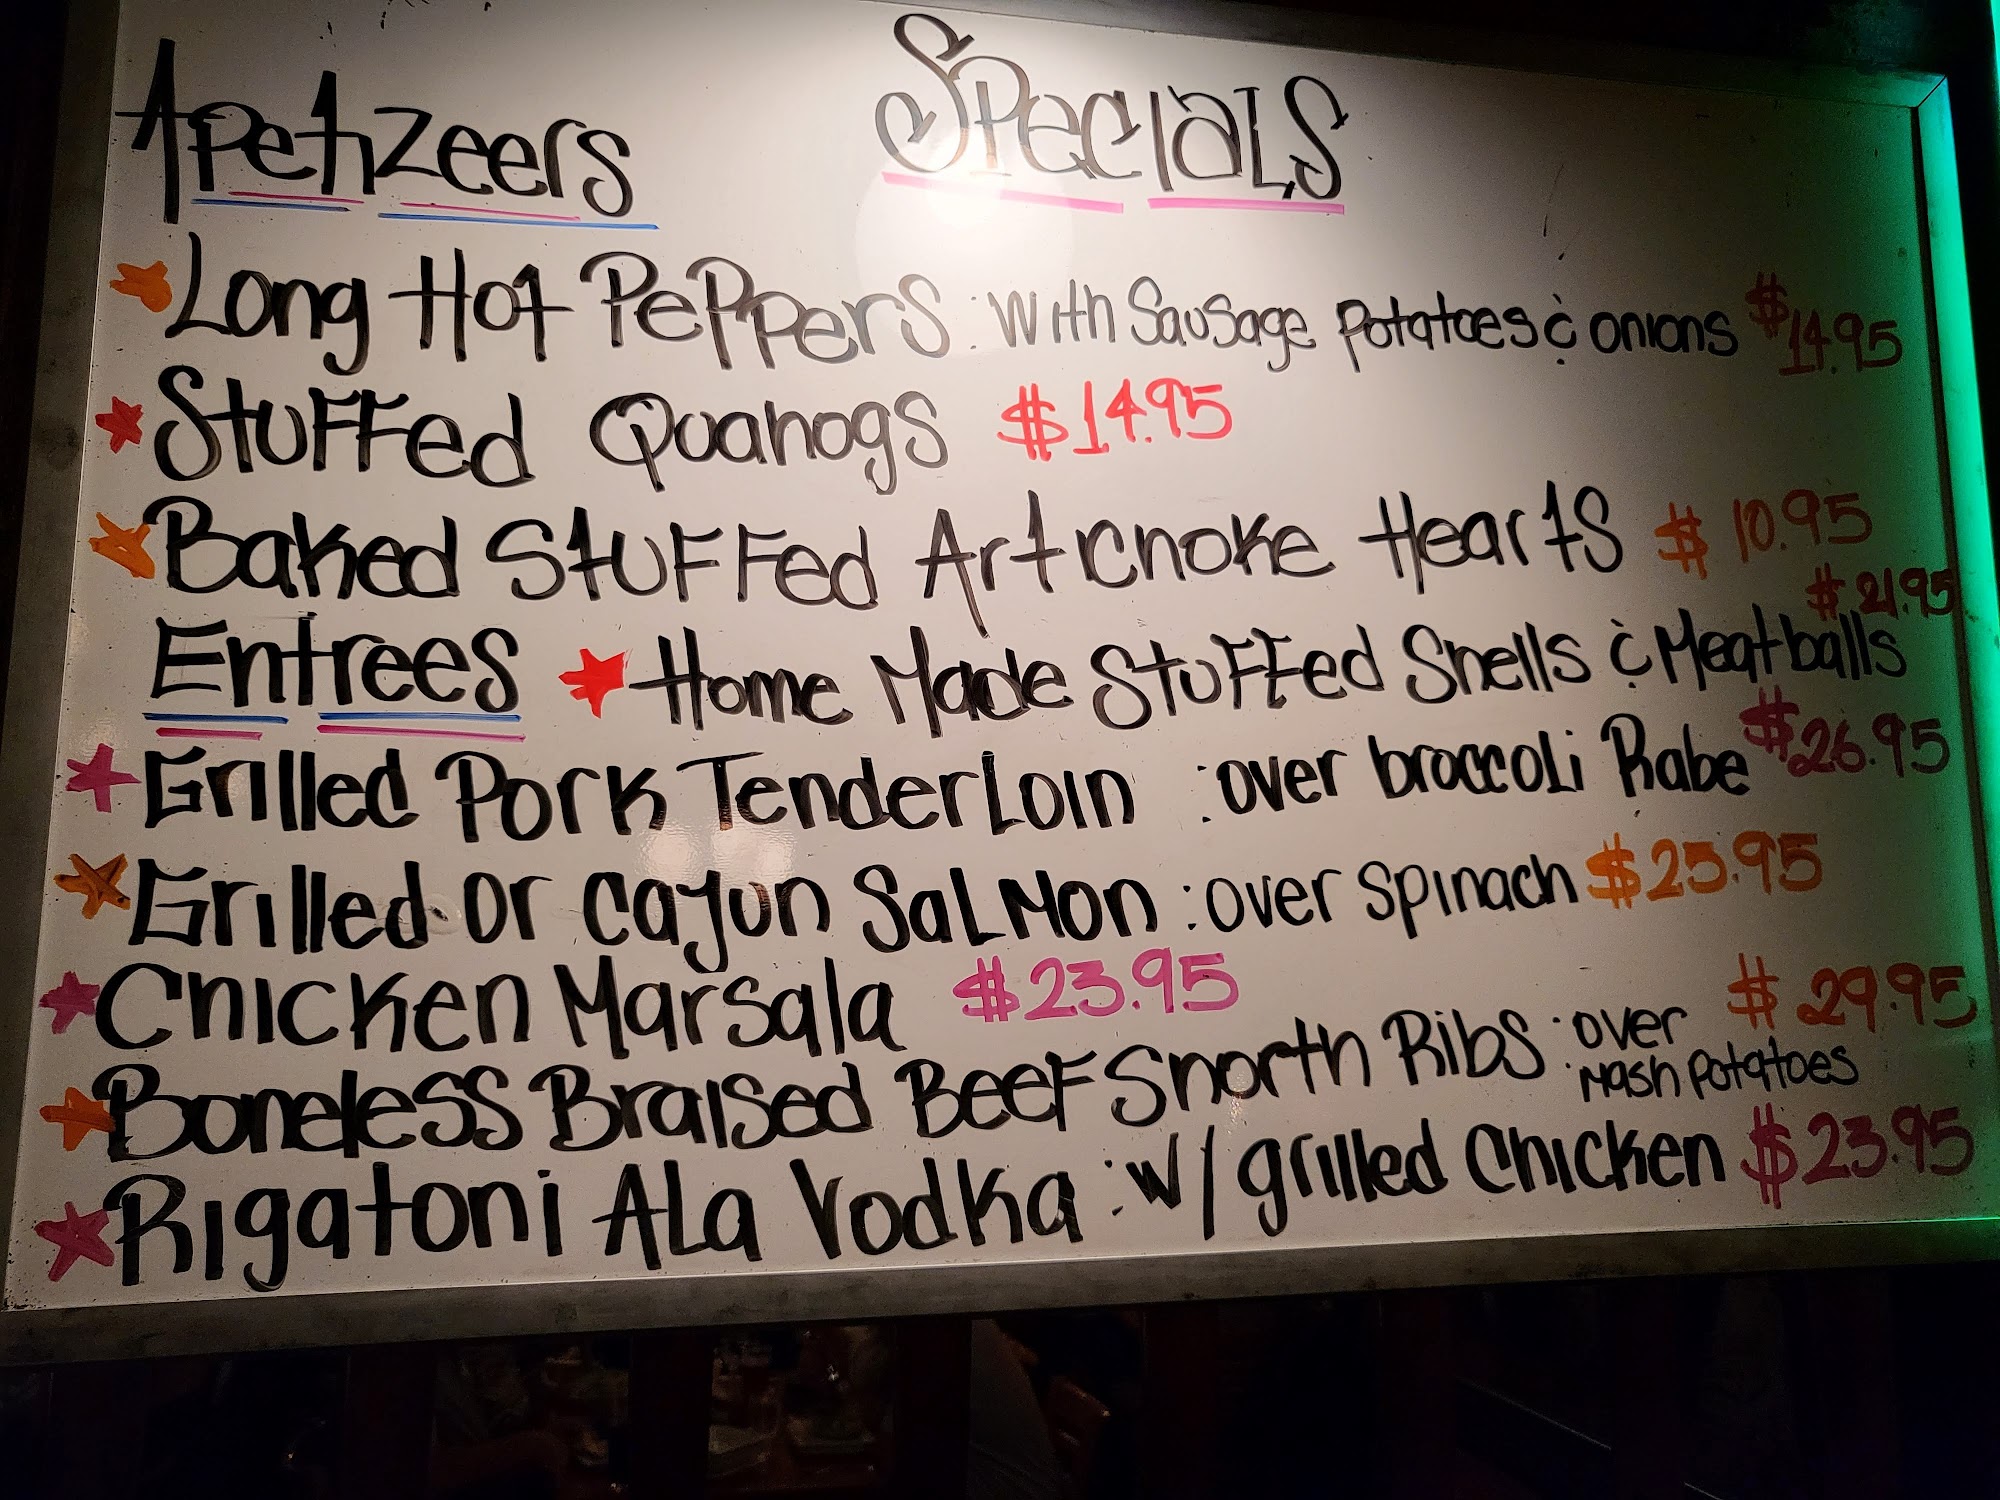 Specials
Apetizeers
Long Hot Peppers : with Sausage potatoes & onions $14.95
Stuffed Quahogs $14.95
Baked Stuffed Artichoke Hearts $10.95
Entrees
Home Made Stuffed Shells & Meatballs $21.95
Grilled Pork Tenderloin : over broccoli Rabe $26.95
Grilled or Cajun Salmon : over spinach $25.95
Chicken Marsala $23.95
Boneless Braised Beef Shorth Ribs : over mash potatoes $29.95
Rigatoni Ala Vodka : w/ grilled Chicken $23.95